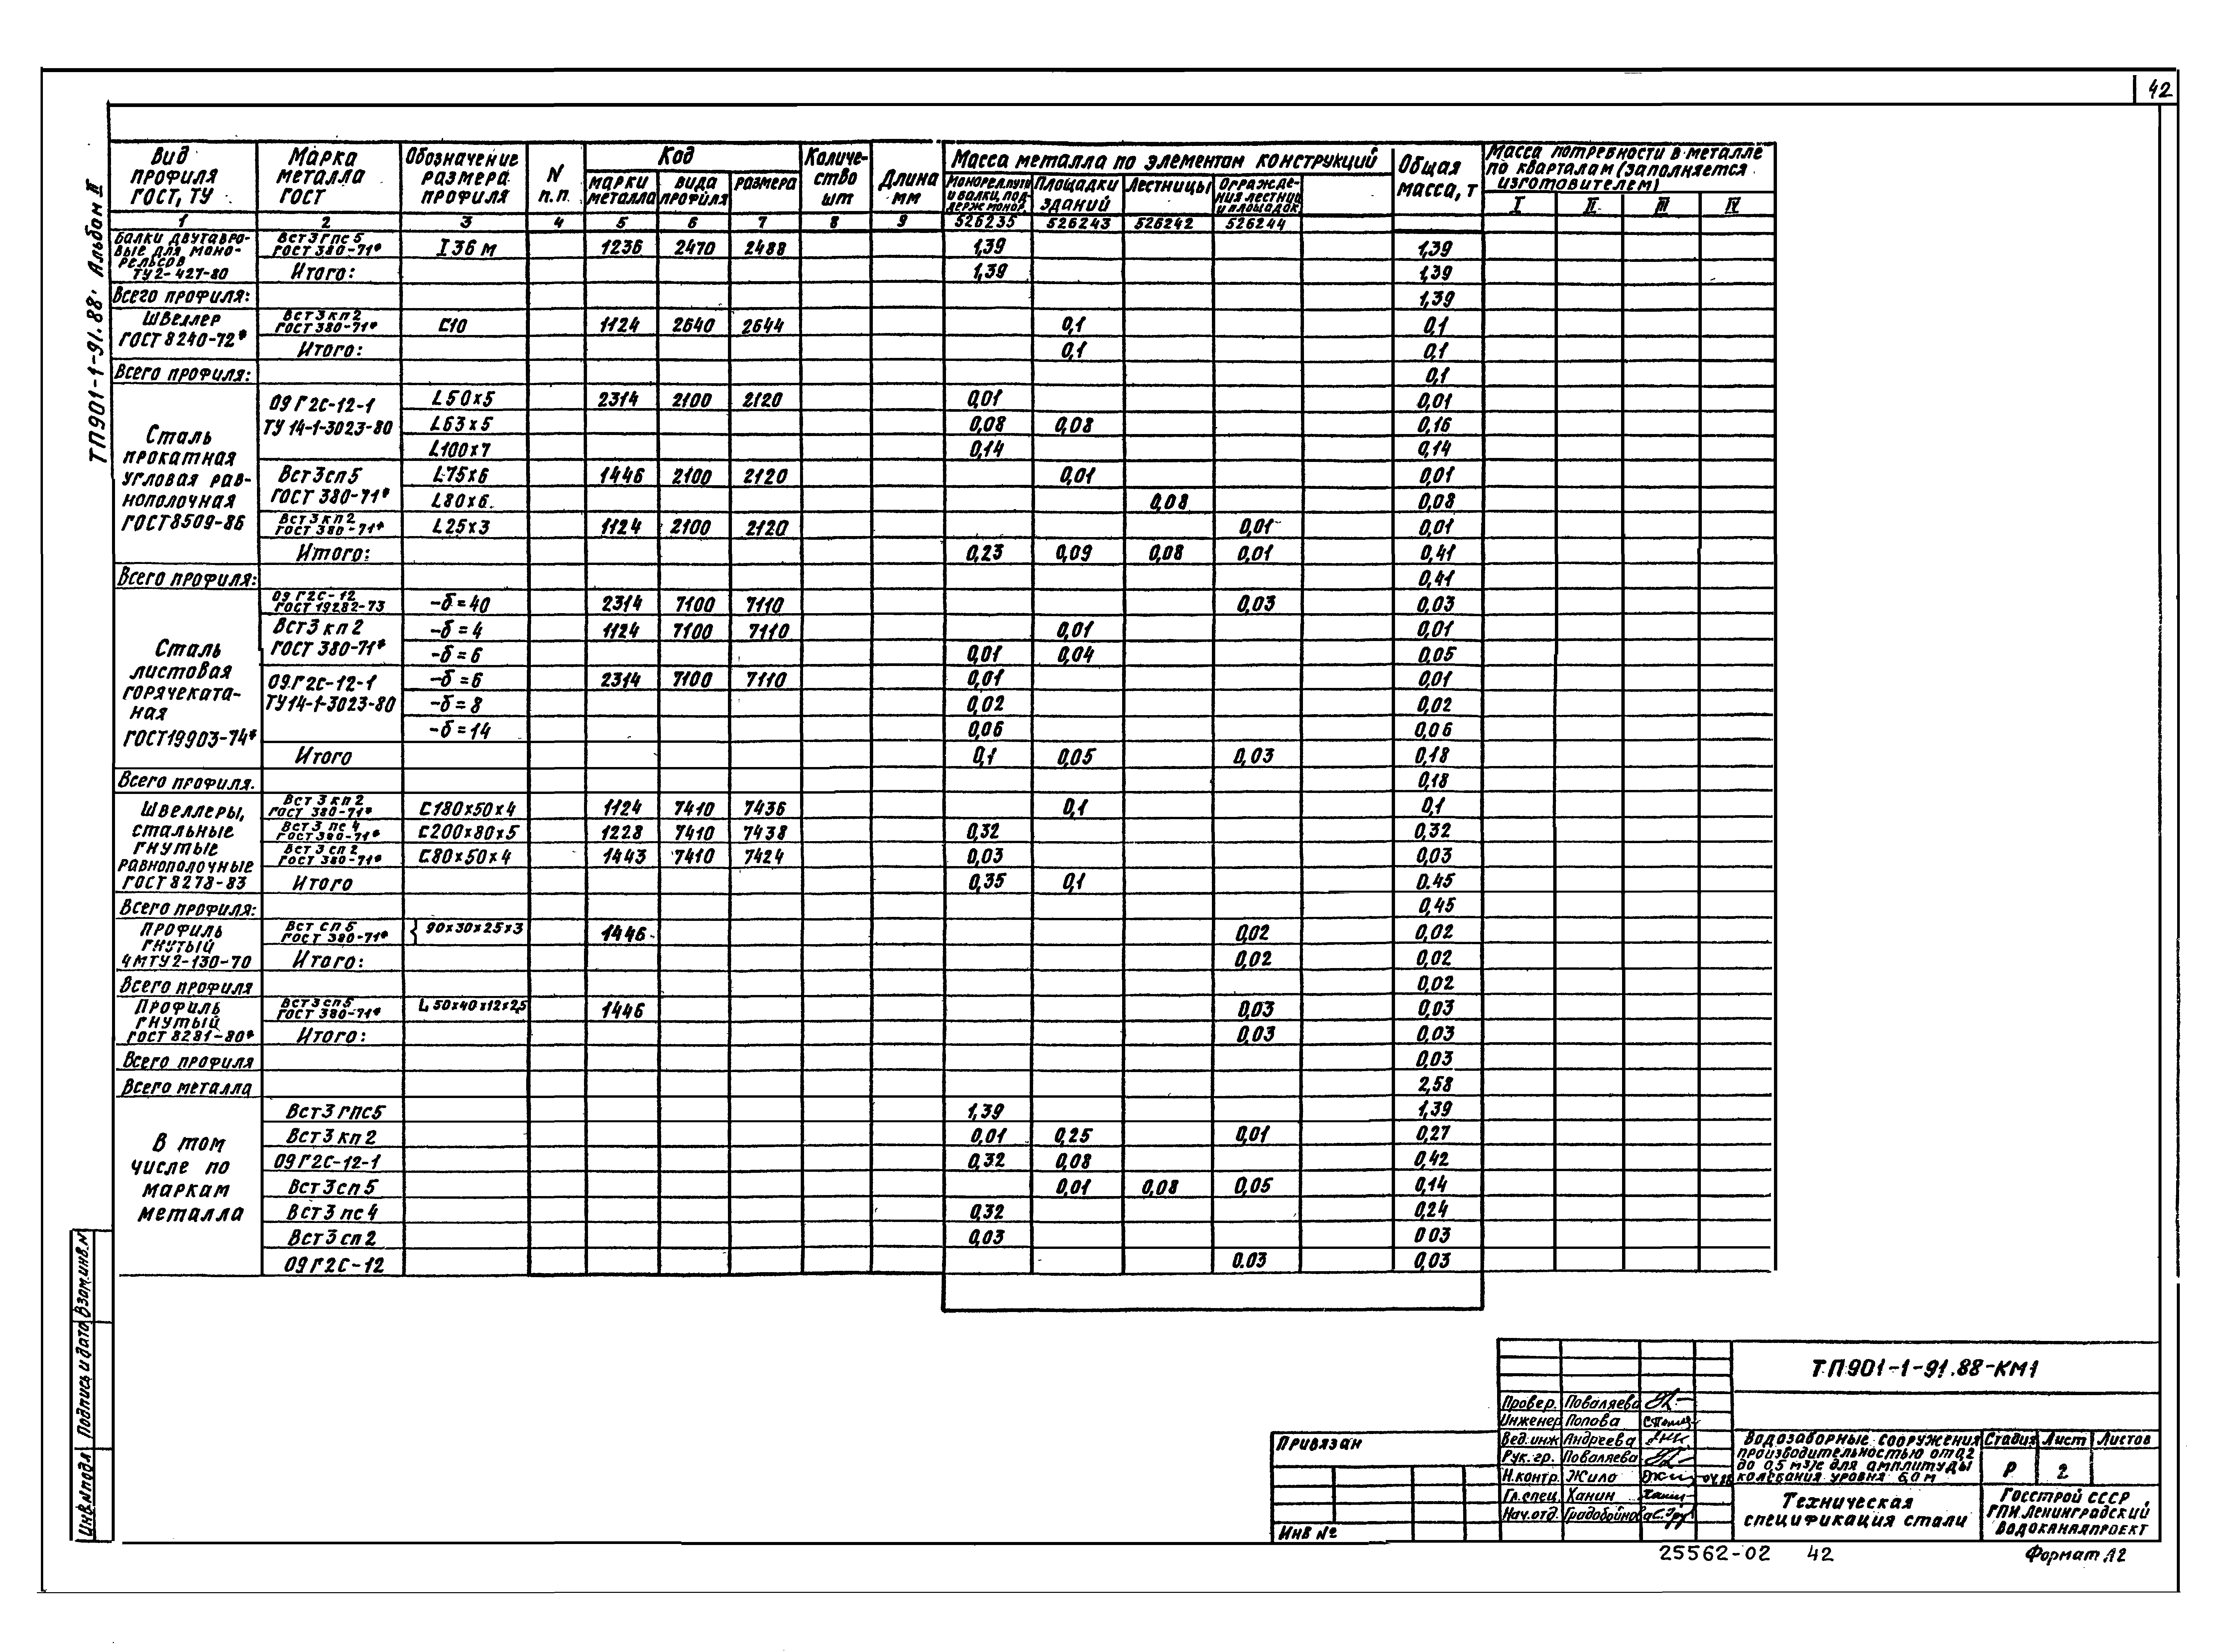 42
ТП901-1-91.88. Альбом II
Вид профиля ГОСТ, ТУ | Марка металла ГОСТ | Обозначение размера профиля | N п.п. | Код | Количество шт | Длина мм | Масса металла по элементам конструкций | Общая масса, т | Масса потребности в металле по кварталам (заполняется изготовителем)
марки металла | вида профиля | размера | Монорел.пути и балки, поддерж монор. | Площадки зданий | Лестницы | Ограждения лестниц и площадок | I | II | III | IV
1 | 2 | 3 | 4 | 5 | 6 | 7 | 8 | 9 | 526235 | 526243 | 526242 | 526244
Балки двутавровые для монорельсов ТУ2-427-80 | Вст3гпс5 ГОСТ 380-71* | I 36 М | 1236 | 2470 | 2488 | 1,39 | 1,39
Итого: | 1,39 | 1,39
Всего профиля: | 1,39
Швеллер ГОСТ 8240-72* | Вст3кп2 ГОСТ 380-71* | С10 | 1124 | 2640 | 2644 | 0,1 | 0,1
Итого: | 0,1 | 0,1
Всего профиля: | 0,1
Сталь прокатная угловая равнополочная ГОСТ8509-86 | 09Г2С-12-1 ТУ 14-1-3023-80 | L50х5 | 2314 | 2100 | 2120 | 0,01 | 0,01
L63х5 | 0,08 | 0,08 | 0,16
L100х7 | 0,14 | 0,14
Вст3сп5 ГОСТ 380-71* | L75х6 | 1446 | 2100 | 2120 | 0,01 | 0,01
L80х6 | 0,08 | 0,08
Вст3кп2 ГОСТ 380-71* | L25х3 | 1124 | 2100 | 2120 | 0,01 | 0,01
Итого: | 0,23 | 0,09 | 0,08 | 0,01 | 0,41
Всего профиля: | 0,41
Сталь листовая горячекатаная ГОСТ19903-74* | 09Г2С-12 ГОСТ 19282-73 | -δ=40 | 2314 | 7100 | 7110 | 0,03 | 0,03
Вст3кп2 ГОСТ 380-71* | -δ=4 | 1124 | 7100 | 7110 | 0,01 | 0,01
-δ=6 | 0,01 | 0,04 | 0,05
09Г2С-12-1 ТУ14-1-3023-80 | -δ=6 | 2314 | 7100 | 7110 | 0,01 | 0,01
-δ=8 | 0,02 | 0,02
-δ=14 | 0,06 | 0,06
Итого | 0,1 | 0,05 | 0,03 | 0,18
Всего профиля. | 0,18
Швеллеры, стальные гнутые равнополочные ГОСТ 8278-83 | Вст3кп2 ГОСТ 380-71* | С180х50х4 | 1124 | 7410 | 7436 | 0,1 | 0,1
Вст3пс4 ГОСТ 380-71* | С200х80х5 | 1228 | 7410 | 7438 | 0,32 | 0,32
Вст3сп2 ГОСТ 380-71* | С80х50х4 | 1443 | 7410 | 7424 | 0,03 | 0,03
Итого | 0,35 | 0,1 | 0.45
Всего профиля: | 0,45
Профиль гнутый ЧМТУ2-130-70 | Вст сп5 ГОСТ 380-71* | 90х30х25х3 | 1446 | 0,02 | 0,02
Итого: | 0,02 | 0,02
Всего профиля | 0,02
Профиль гнутый ГОСТ 8281-80* | Вст3сп5 ГОСТ 380-71* | 50х40х12х2,5 | 1446 | 0,03 | 0,03
Итого: | 0,03 | 0,03
Всего профиля | 0,03
Всего металла | 2,58
В том числе по маркам металла | Вст3гпс5 | 1,39 | 1,39
Вст3кп2 | 0,01 | 0,25 | 0,01 | 0,27
09Г2С-12-1 | 0,32 | 0,08 | 0,42
Вст3сп5 | 0,01 | 0,08 | 0,05 | 0,14
Вст3пс4 | 0,32 | 0,24
Вст3сп2 | 0,03 | 0 03
09Г2С-12 | 0.03 | 0,03
Инв.№подл | Подпись и дата | Взам.инв.№
Привязан
Инв №
ТП901-1-91.88-КМ1
Провер. Поваляева
Инженер Попова
Вед.инж Андреева
Рук.гр. Поваляева
Н.контр. Жило
Гл.спец. Ханин
Нач.отд. Градобойнова
Водозаборные сооружения производительностью от 0,2 до 0,5 м3/с для амплитуды колебания уровня 6,0 м
Стадия | Лист | Листов
Р | 2
Техническая спецификация стали
Госстрой СССР
ГПИ Ленинградский
Водоканалпроект
25562-02 42
Формат А2